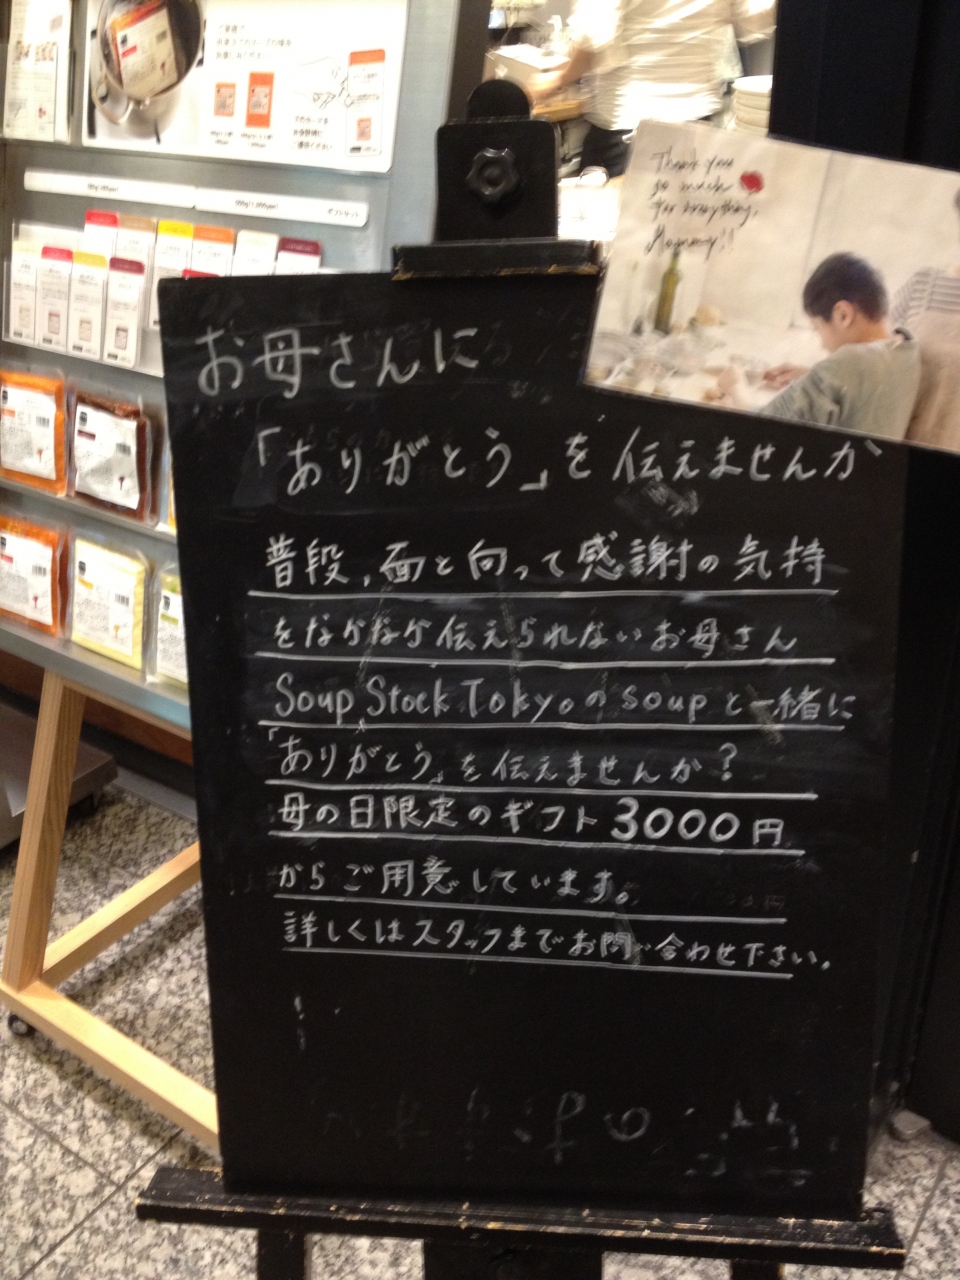 Thank you
so much
for everything,
Mommy!!
お母さんに
「ありがとう」を伝えませんか
普段、面と向って感謝の気持
をなかなか伝えられないお母さん
Soup Stock Tokyoのsoupと一緒に
「ありがとう」を伝えませんか?
母の日限定のギフト3000円
からご用意しています。
詳しくはスタッフまでお問い合わせ下さい。